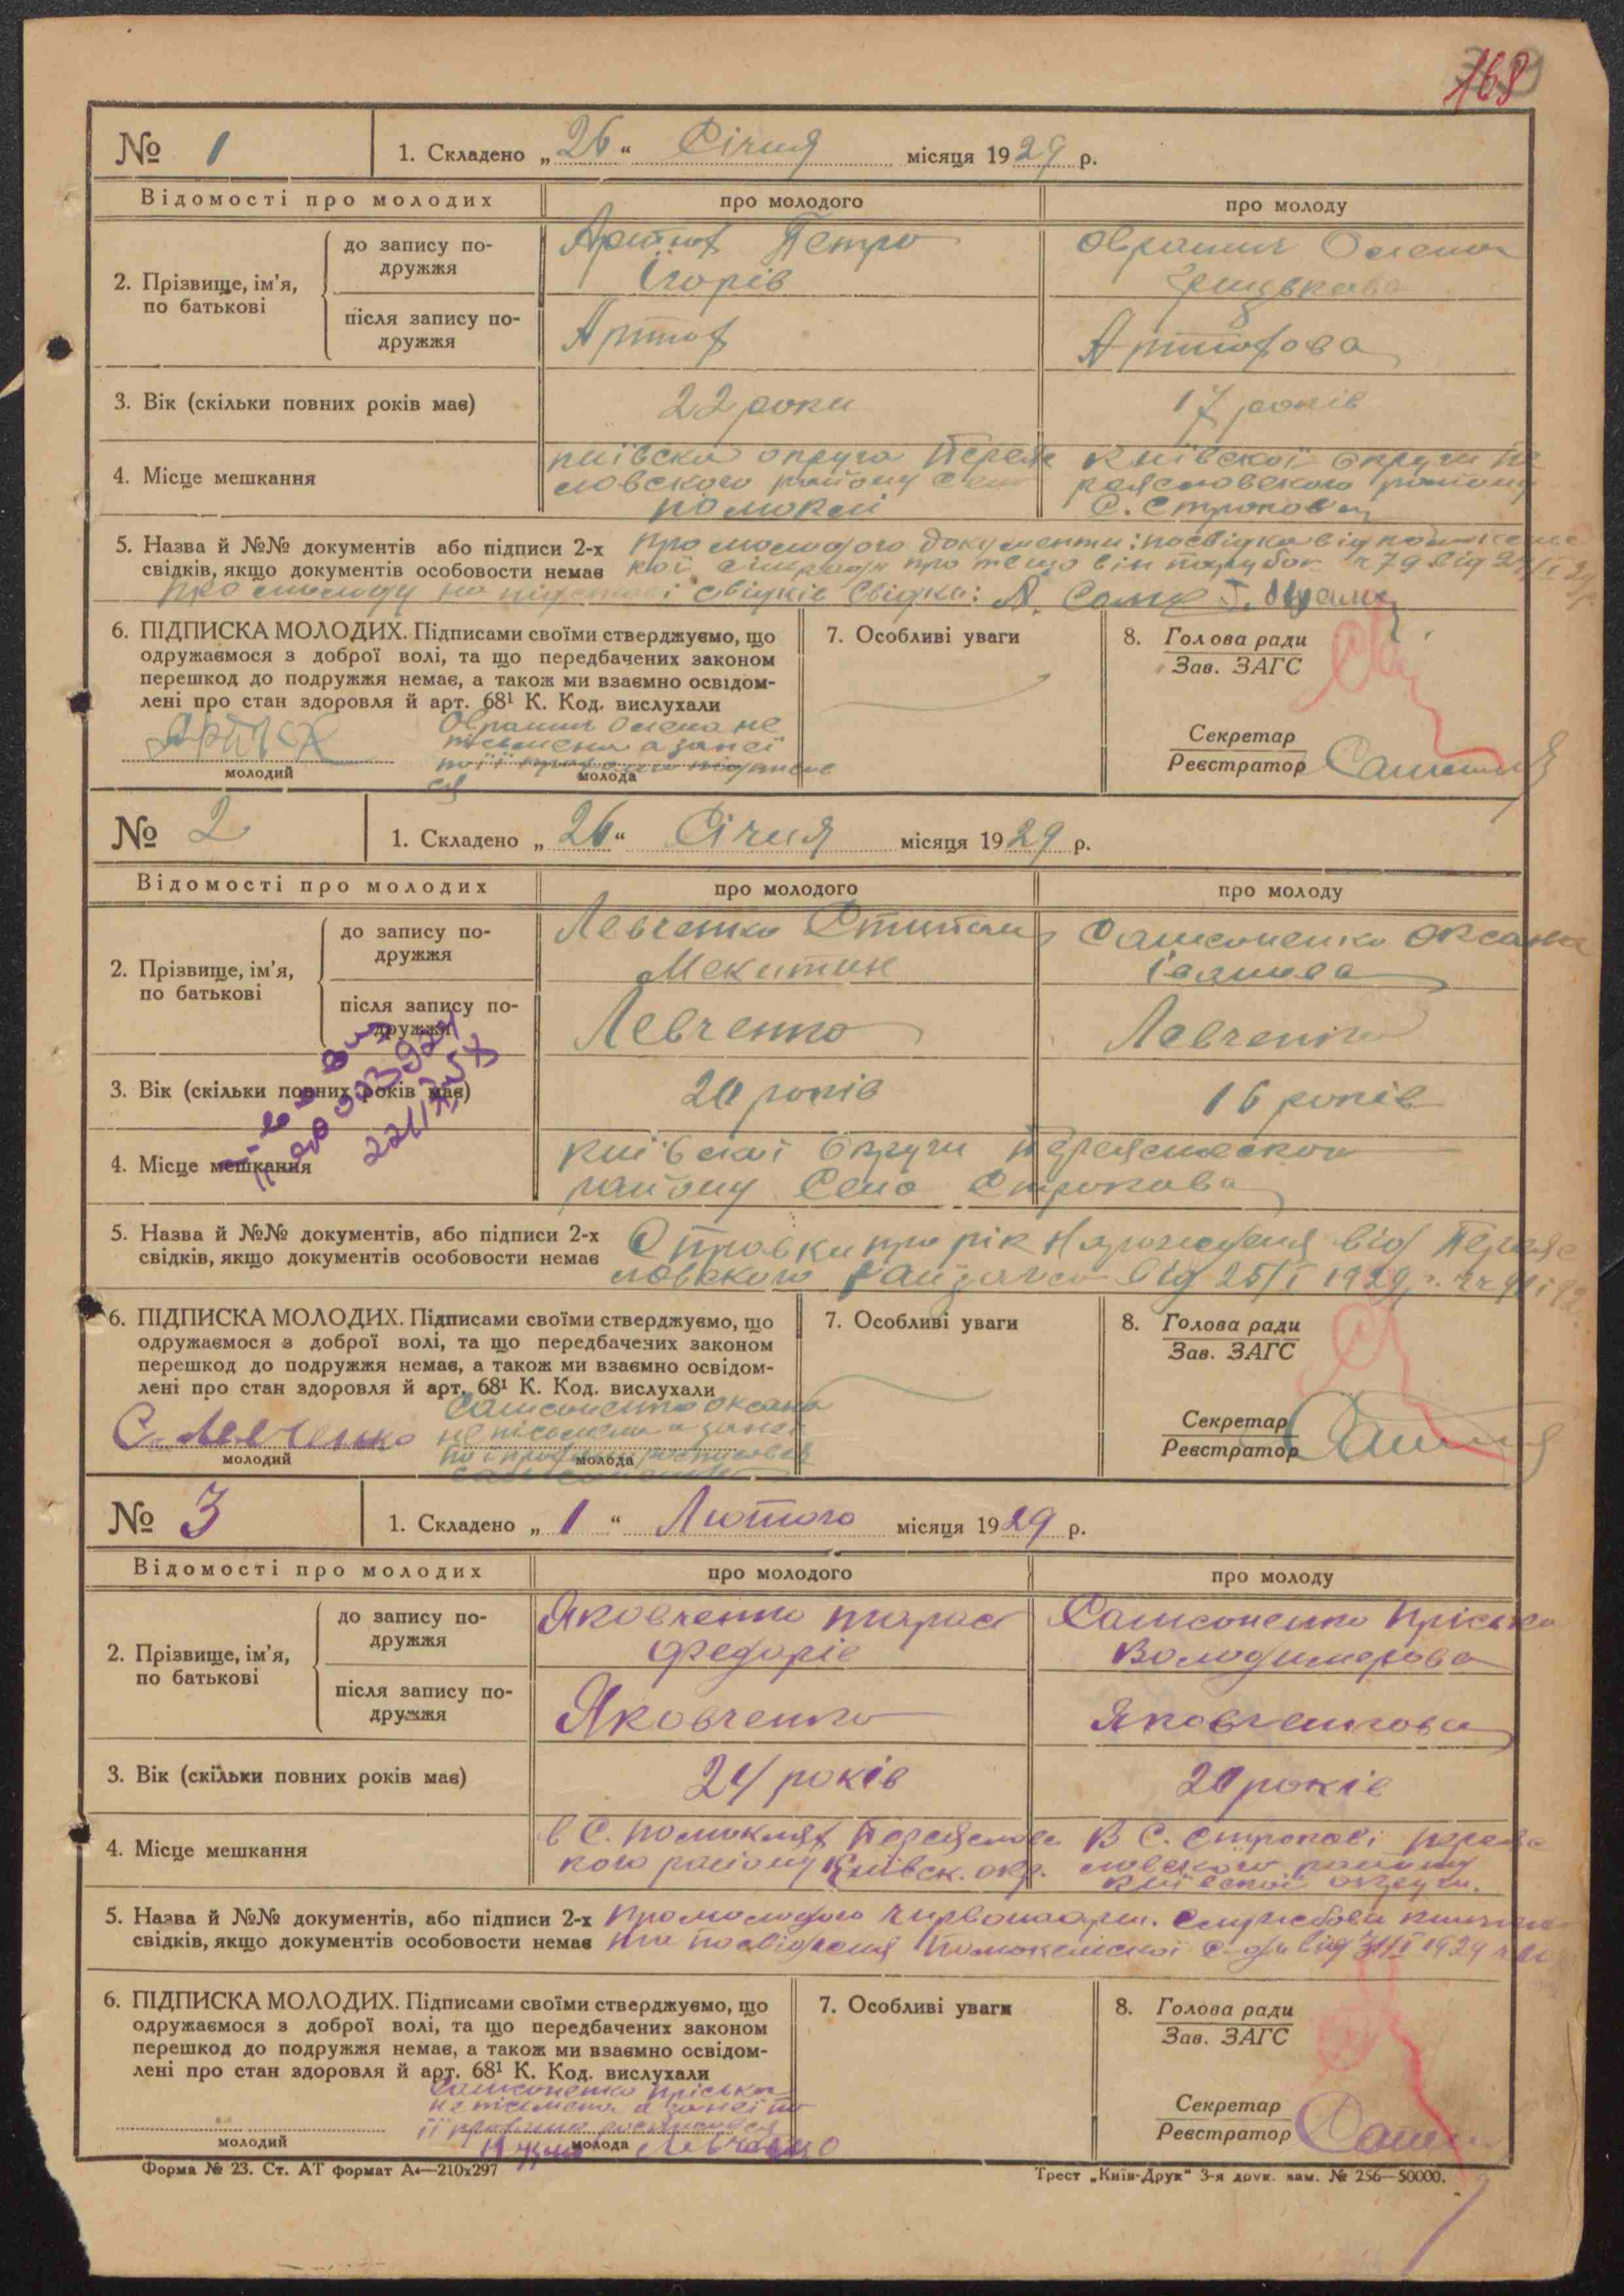 168
№ 1
1. Складено „26“ Січня місяця 1929 р.
Відомості про молодих
про молодого
про молоду
2. Прізвище, ім'я, по батькові
до запису подружжя
Артюх Петро
Ігорів
Олена
Грицькова
після запису подружжя
Артюх
Артюхова
3. Вік (скільки повних років має)
22 роки
17 років
4. Місце мешкання
Київска округа Переяс
ловского району Село
Помоклі
Київскої Округи Пе
реясловского району
С. Строкова
5. Назва й №№ документів або підписи 2-х
свідків, якщо документів особовости немає
Про молодого документи: посвідка від
про те що він парубок 79 від
Про молоду на підставі свідків Свідки:
6. ПІДПИСКА МОЛОДИХ. Підписами своїми стверджуємо, що
одружаємося з доброї волі, та що передбачених законом
перешкод до подружжя немає, а також ми взаємно освідом-
лені про стан здоровля й арт. 68¹ К. Код. вислухали
Артюх
молодий
Олена не
письмена а за неї
молода
7. Особливі уваги
8. Голова ради
Зав. ЗАГС
Секретар
Реєстратор
№ 2
1. Складено „26“ Січня місяця 1929 р.
Відомості про молодих
про молодого
про молоду
2. Прізвище, ім'я, по батькові
до запису подружжя
Левченко Степан
Мекитин
Самсоненко Оксана
Іванова
після запису подружжя
Левченко
Левченко
3. Вік (скільки повних років має)
20 років
16 років
4. Місце мешкання
Київскої Округи Переясловского
району Село Строкова
5. Назва й №№ документів, або підписи 2-х
свідків, якщо документів особовости немає
Справки про рік Народження від Переяс
ловского від 25/I 1929 р.
6. ПІДПИСКА МОЛОДИХ. Підписами своїми стверджуємо, що
одружаємося з доброї волі, та що передбачених законом
перешкод до подружжя немає, а також ми взаємно освідом-
лені про стан здоровля й арт. 68¹ К. Код. вислухали
С. Левченко
молодий
Самсоненко Оксана
не письмена а за неї
молода
7. Особливі уваги
8. Голова ради
Зав. ЗАГС
Секретар
Реєстратор
№ 3
1. Складено „1“ Лютого місяця 1929 р.
Відомості про молодих
про молодого
про молоду
2. Прізвище, ім'я, по батькові
до запису подружжя
Яковченко Тарас
Федорів
Самсоненко Пріська
Володимерова
після запису подружжя
Яковченко
Яковченкова
3. Вік (скільки повних років має)
24 років
20 років
4. Місце мешкання
в С. Помоклях Переяслівс
кого району Київск. окр.
В С. Строкові Перея
словского району
Київскої округи.
5. Назва й №№ документів, або підписи 2-х
свідків, якщо документів особовости немає
Про молодого Червоноарм. Службова книжка
та посвідчення
6. ПІДПИСКА МОЛОДИХ. Підписами своїми стверджуємо, що
одружаємося з доброї волі, та що передбачених законом
перешкод до подружжя немає, а також ми взаємно освідом-
лені про стан здоровля й арт. 68¹ К. Код. вислухали
молодий
Самсоненко Пріська
не письмена а за неї по
її росписався
молода
Левченко
7. Особливі уваги
8. Голова ради
Зав. ЗАГС
Секретар
Реєстратор
Форма № 23. Ст. АТ формат А₄—210х297
Трест „Київ-Друк“ 3-я друк. зам. № 256—50000.